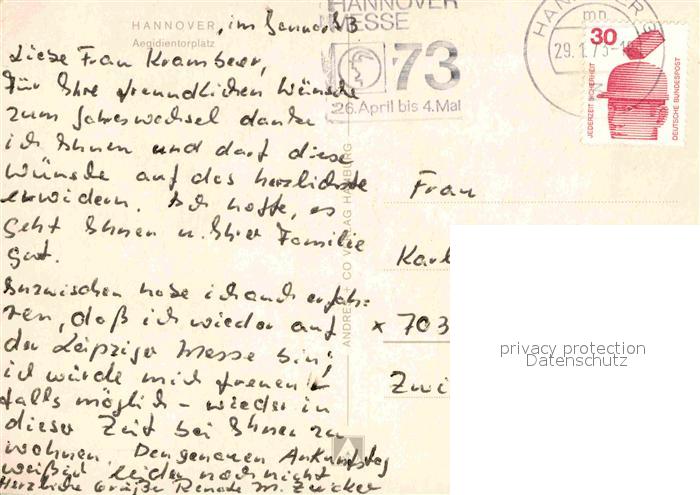 HANNOVER, im Januar 73
Aegidientorplatz
Liebe Frau Krambeer,
Für Ihre freundlichen Wünsche
zum Jahreswechsel danke
ich Ihnen und darf diese
Wünsche auf das herzlichste
erwidern. Ich hoffe, es
geht Ihnen u. Ihrer Familie
gut.
Inzwischen habe ich auch erfah-
ren, daß ich wieder auf
der Leipziger Messe bin:
ich würde mich freuen
falls möglich - wieder in
dieser Zeit bei Ihnen zu
wohnen. Den genauen Ankunftstag
weiß ich leider noch nicht
Herzliche Grüße Renate M. Zwicker
ANDRES + CO VERLAG HAMBURG
HANNOVER
MESSE
73
26. April bis 4. Mai
HANNOVER
mn
29.1.73
30
JEDERZEIT SICHERHEIT
DEUTSCHE BUNDESPOST
Frau
Karl
x 703
Zwi
privacy protection
Datenschutz